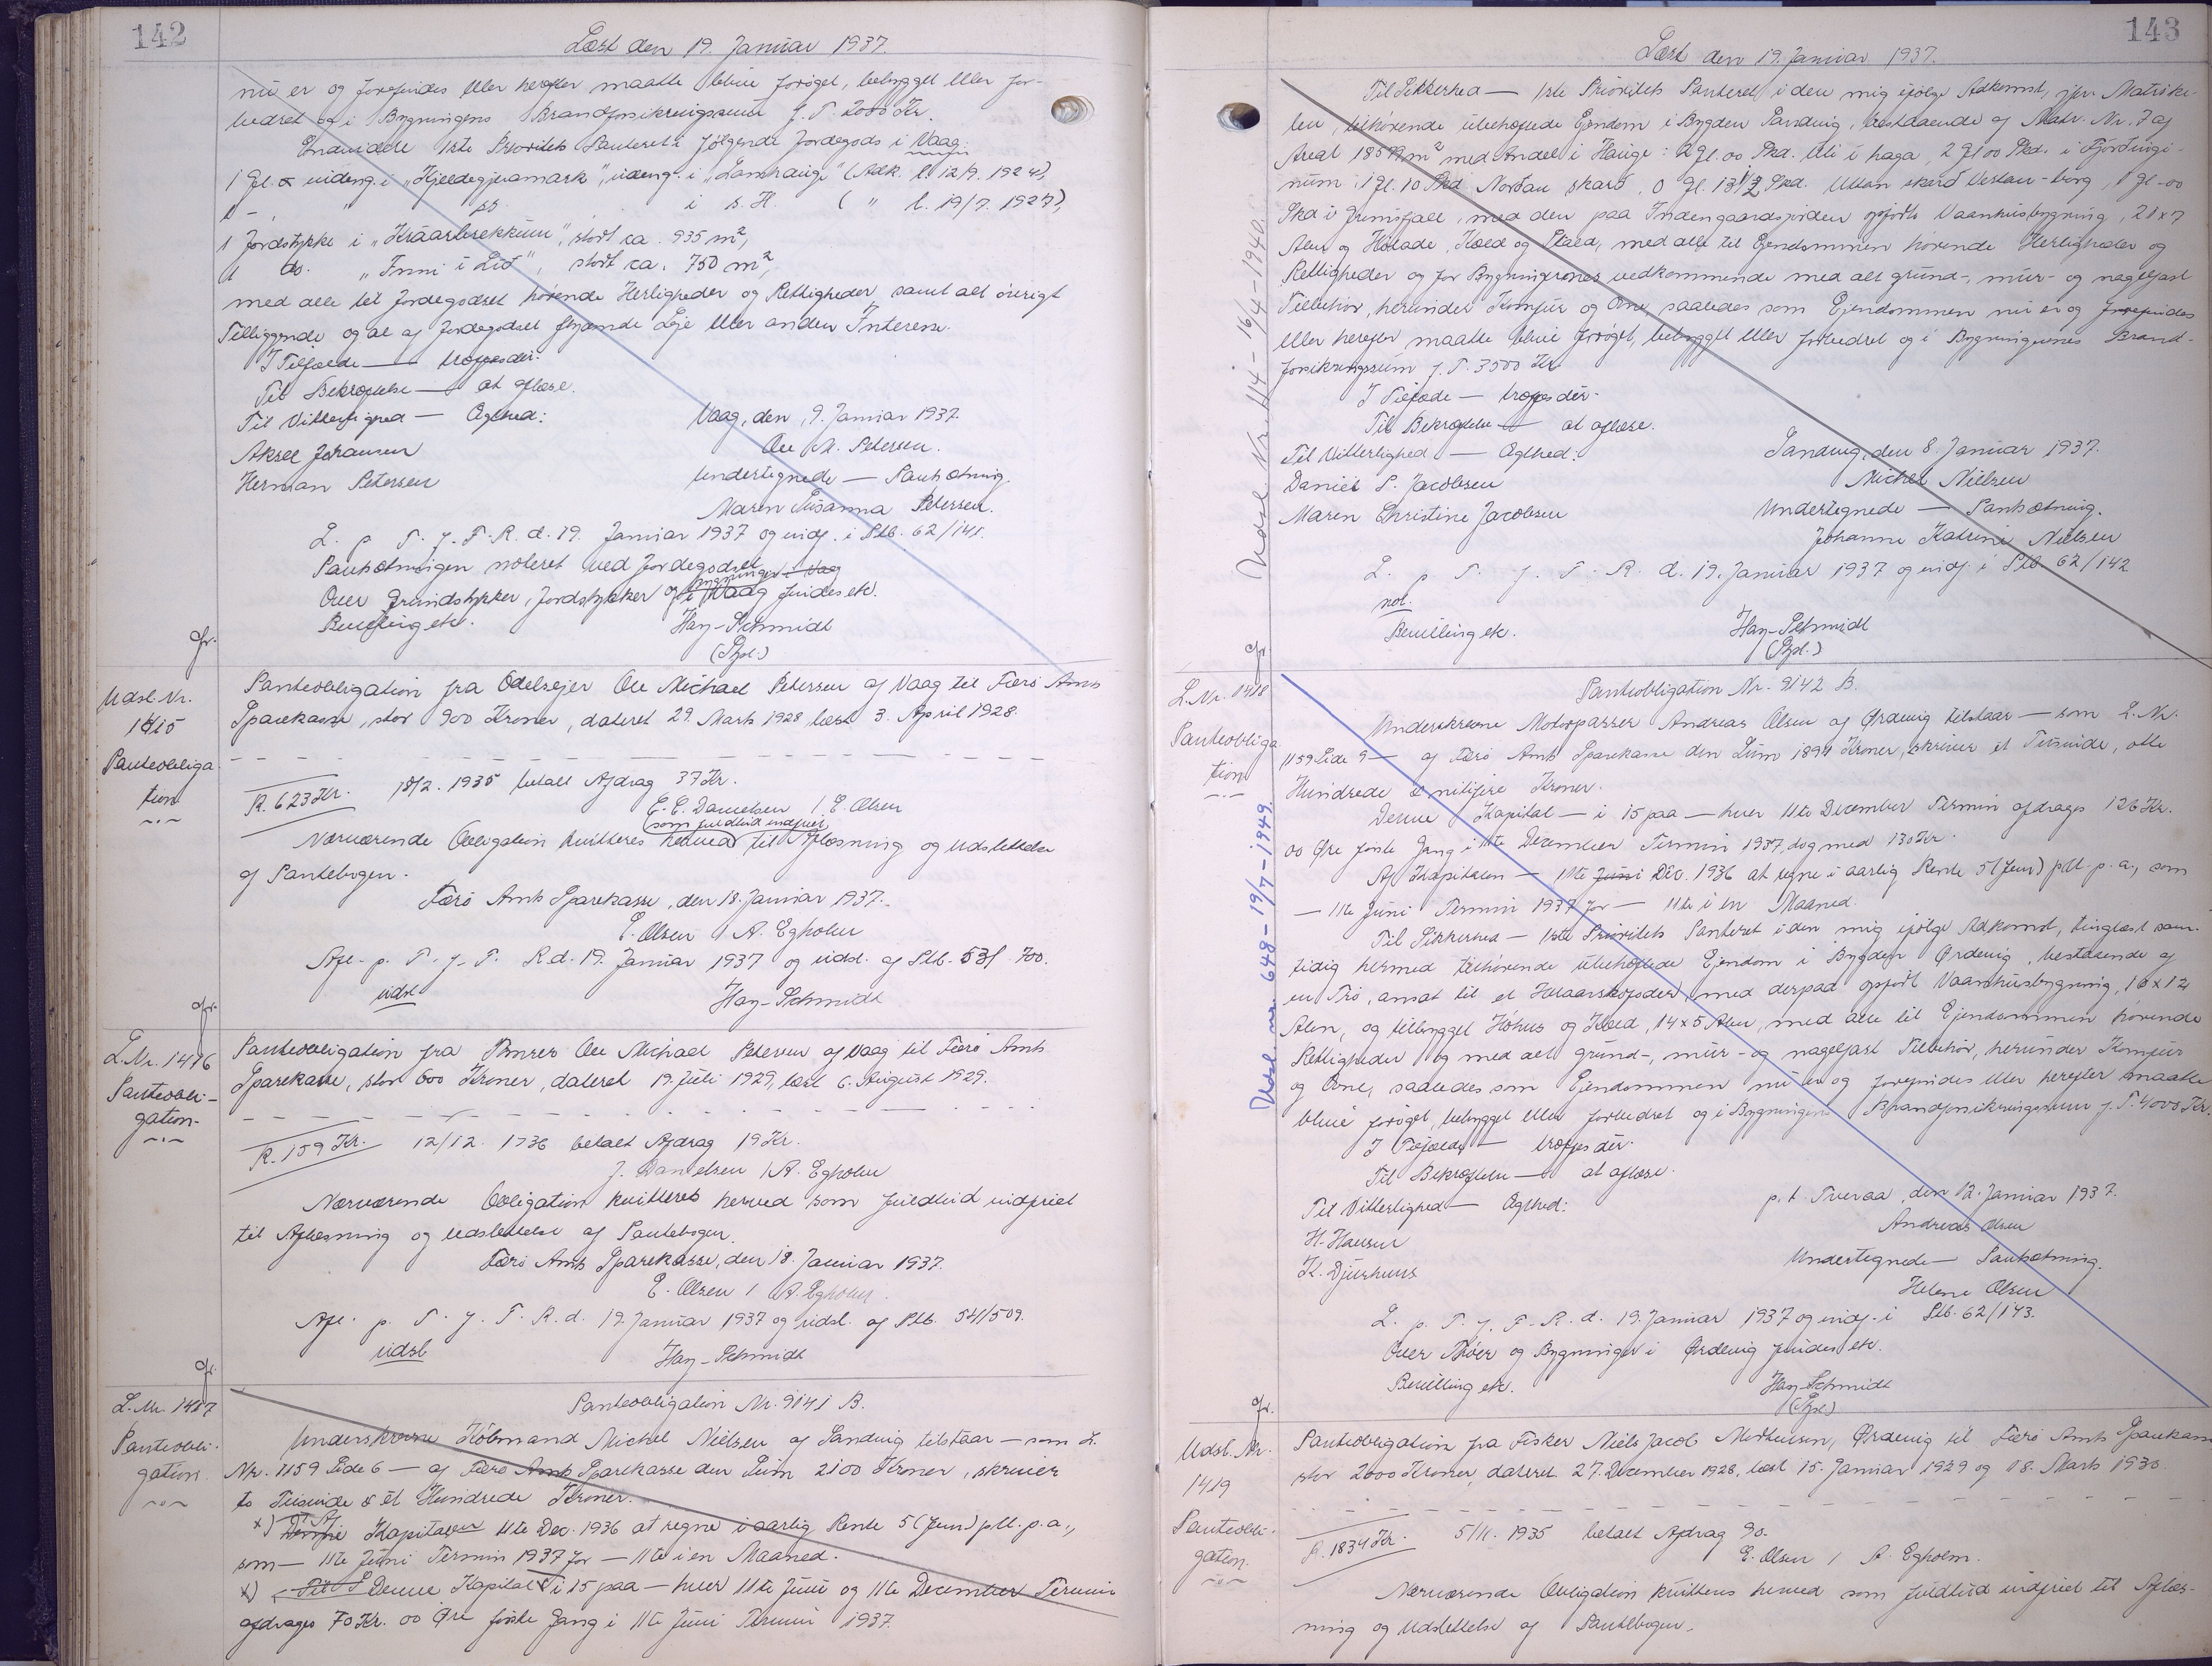 142
Læst den 19. Januar 1937.
nu er og forefindes eller herefter maatte blive forøget, bebygget eller for-
bedret og i Bygningens Brandforsikringssum f. T. 2000 Kr.
Endvidere 1ste Prioritets Panteret i følgende Jordegods i Vaag:
1 Gl. udeng. i „Hjældegjaramark", indeng. i „Lambhauge" (Adk. l. 12/9. 1924),
1 - " ps. i s. H. ( " l. 19/7. 1927),
1 Jordstykke i „Kráarbrekkum", stort ca. 935 m²,
1 do. „Inni i Lið", stort ca. 750 m²,
med alle til Jordegodset hørende Herligheder og Rettigheder, samt alt øvrigt
Tilliggende og al af Jordegodset flydende Leje eller anden Interesse.
I Tilfælde — træffes dér.
Til Bekræftelse — at aflæse.
Til Vitterlighed — Ægthed: Vaag, den 9. Januar 1937.
Aksel Johansen Ole M. Petersen.
Herman Petersen Undertegnede — Pantsætning.
Maren Susanna Petersen.
L. p. T. f. F. R. d. 19. Januar 1937 og indf. i Ptb. 62/141.
Pantsætningen noteret ved Jordegodset
bygninger i Vaag
Over Grundstykker, Jordstykker og i Vaag findes etc.
Bevilling etc. Hay-Schmidt
Gr. (Sgl.)
Udsl. Nr. 1415 Panteobligation
Panteobligation fra Odelsejer Ole Michael Petersen af Vaag til Færø Amts
Sparekasse, stor 900 Kroner, dateret 29. Marts 1928 læst 3. April 1928.
R. 623 Kr. 18/2. 1935 betalt Afdrag 37 Kr.
E. E. Danielsen / E. Olsen
(som fuldtud indfriet)
Nærværende Obligation kvitteres herved til Aflæsning og Udslettelse
af Pantebogen.
Færø Amts Sparekasse, den 18. Januar 1937.
E. Olsen / A. Egholm
Afl. p. T. f. F. R. d. 19. Januar 1937 og udsl. af Ptb. 53/700.
Gr. udsl Hay-Schmidt
L. Nr. 1416 Panteobligation
Panteobligation fra Ole Michael Petersen af Vaag til Færø Amts
Sparekasse, stor 600 Kroner, dateret 19. Juli 1929, læst 6. August 1929.
R. 159 Kr. 12/12. 1936 betalt Afdrag 19 Kr.
J. Danielsen / A. Egholm
Nærværende Obligation kvitteres herved som fuldtud indfriet
til Aflæsning og Udslettelse af Pantebogen.
Færø Amts Sparekasse, den 18. Januar 1937.
E. Olsen / A. Egholm.
Afl. p. T. f. F. R. d. 19. Januar 1937 og udsl. af Ptb. 54/509.
Gr. udsl Hay-Schmidt
L. Nr. 1417 Panteobligation
Panteobligation Nr. 9141 B.
Underskrevne Købmand Michel Nielsen af Sandvig tilstaar — som L.
Nr. 1159 Side 6 — af Færø Amts Sparekasse den Sum 2100 Kroner, skriver
to Tusinde & ét Hundrede Kroner.
x) Af Kapitalen 11te Dec. 1936 at regne i aarlig Rente 5 (fem) pCt. p. a.,
som — 11te Juni Termin 1937 for — 11te i en Maaned.
x) Til S Denne Kapital i 15 paa — hver 11te Juni og 11te December Termin
afdrages 70 Kr. 00 Øre første Gang i 11te Juni Termin 1937.
143
Læst den 19. Januar 1937.
Til Sikkerhed — 1ste Prioritets Panteret i den mig ifølge Adkomst, jfr. Matrike-
len, tilhørende ubehæftede Ejendom i Bygden Sandvig, bestaaende af Matr. Nr. 7 af
Areal 18599 m² med Andel i Hauge: 2 Gl. 00 Skd. Uti i haga, 2 Gl 00 Skd. i Fjórðingi-
num, 1 Gl. 10 Skd Norðan skarð, 0 Gl. 13 1/2 Skd. Uttan skarð Vestan-borg, 1 Gl-00
Skd i Grimsfjall, med den paa Indengaardsjorden opførte Vaanhusbygning, 21x7
Alen og Hølade, Kæld og Stald, med alle til Ejendommen hørende Herligheder og
Rettigheder og for Bygningernes vedkommende med alt grund-, mur- og nagelfast
Tilbehør, herunder Komfur og Ovne, saaledes som Ejendommen nu er og forefindes
eller herefter maatte blive forøget, bebygget eller forbedret og i Bygningernes Brand-
forsikringssum f. T. 3500 Kr.
I Tilfælde — træffes dér.
Til Bekræftelse — at aflæse.
Til Vitterlighed — Ægthed: Sandvig, den 8. Januar 1937.
Daniel S. Jacobsen Michel Nielsen
Maren Christine Jacobsen Undertegnede — Pantsætning.
Johanne Katrine Nielsen
L. p. T. f. F. R. d. 19. Januar 1937 og indf. i Ptb 62/142
not.
Bevilling etc. Hay-Schmidt
Gr. (Sgl.)
Udsl Nr. 114 - 16/4 - 1940.
L. Nr. 1418 Panteobligation
Panteobligation Nr. 9142 B.
Underskrevne Motorpasser Andreas Olsen af Ørdevig tilstaar — som L. Nr.
1159 Side 9 — af Færø Amts Sparekasse den Sum 1894 Kroner, skriver ét Tusinde, otte
Hundrede & nitifire Kroner.
Denne Kapital — i 15 paa — hver 11te December Termin afdrages 126 Kr.
00 Øre første Gang i 11te December Termin 1937, dog med 130 Kr.
Af Kapitalen — 11te Juni Dec. 1936 at regne i aarlig Rente 5 (fem) pCt p. a., som
— 11te Juni Termin 1937 for — 11te i en Maaned.
Til Sikkerhed — 1ste Prioritets Panteret i den mig ifølge Adkomst, tinglæst sam-
tidig hermed tilhørende ubehæftede Ejendom i Bygden Ørdevig, bestaaende af
en Trø, ansat til et Halvaarskofoder, med derpaa opført Vaanhusbygning, 16x12
Alen, og tilbygget Høhus og Kæld, 14x5 Alen, med alle til Ejendommen hørende
Rettigheder og med alt grund-, mur- og nagelfast Tilbehør, herunder Komfur
og Ovne, saaledes som Ejendommen nu er og forefindes eller herefter maatte
blive forøget, bebygget eller forbedret og i Bygningens Brandforsikringssum f. T. 4000 Kr.
I Tilfælde — træffes dér.
Til Bekræftelse — at aflæse.
Til Vitterlighed — Ægthed: p. t. Tveraa, den 12. Januar 1937.
H. Hansen Andreas Olsen
K. Djurhuus Undertegnede — Pantsætning.
Helene Olsen
L. p. T. f. F. R. d. 19. Januar 1937 og indf. i Ptb. 62/143.
Over Trøer og Bygninger i Ørdevig findes etc.
Bevilling etc. Hay-Schmidt
Gr. (Sgl.)
Udsl. nr. 648 - 19/7 - 1949.
Udsl. Nr. 1419 Panteobligation.
Panteobligation fra Fisker Niels Jacob Mortensen, Ørdevig til Færø Amts Sparekasse
stor 2000 Kroner, dateret 27. December 1928, læst 15. Januar 1929 og 18. Marts 1930.
R. 1834 Kr. 5/11. 1935 betalt Afdrag 90.
E. Olsen / A. Egholm.
Nærværende Obligation kvitteres herved som fuldtud indfriet til Aflæs-
ning og Udslettelse af Pantebogen.